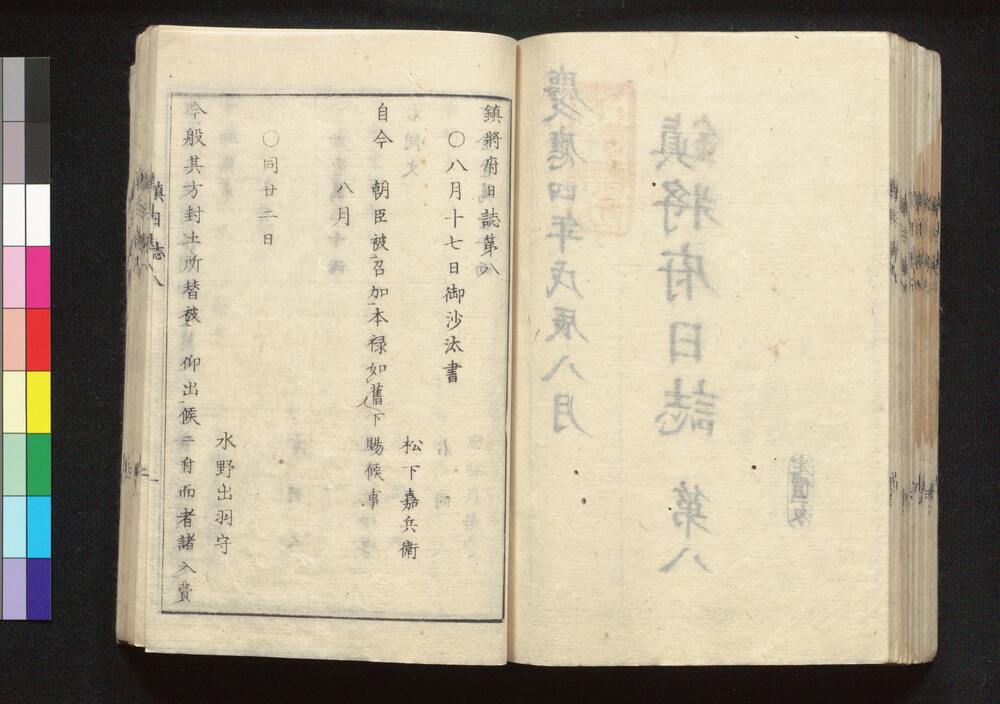 慶應四年戊辰八月
鎮將府日誌 第八
鎮將府日誌第八
○八月十七日御沙汰書
松下嘉兵衛
自今 朝臣被召加本禄如舊下賜候事
八月
○同廿二日
水野出羽守
今般其方封土所替被 仰出候ニ付而者諸入費
鎮日誌八